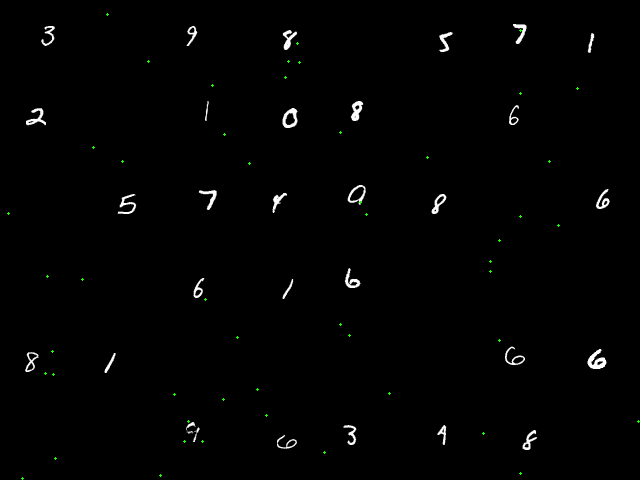 3 9 8 5 7 1
2 1 0 8 6
5 7 4 9 8 6
6 1 6
8 1 6 6
9 6 3 4 8